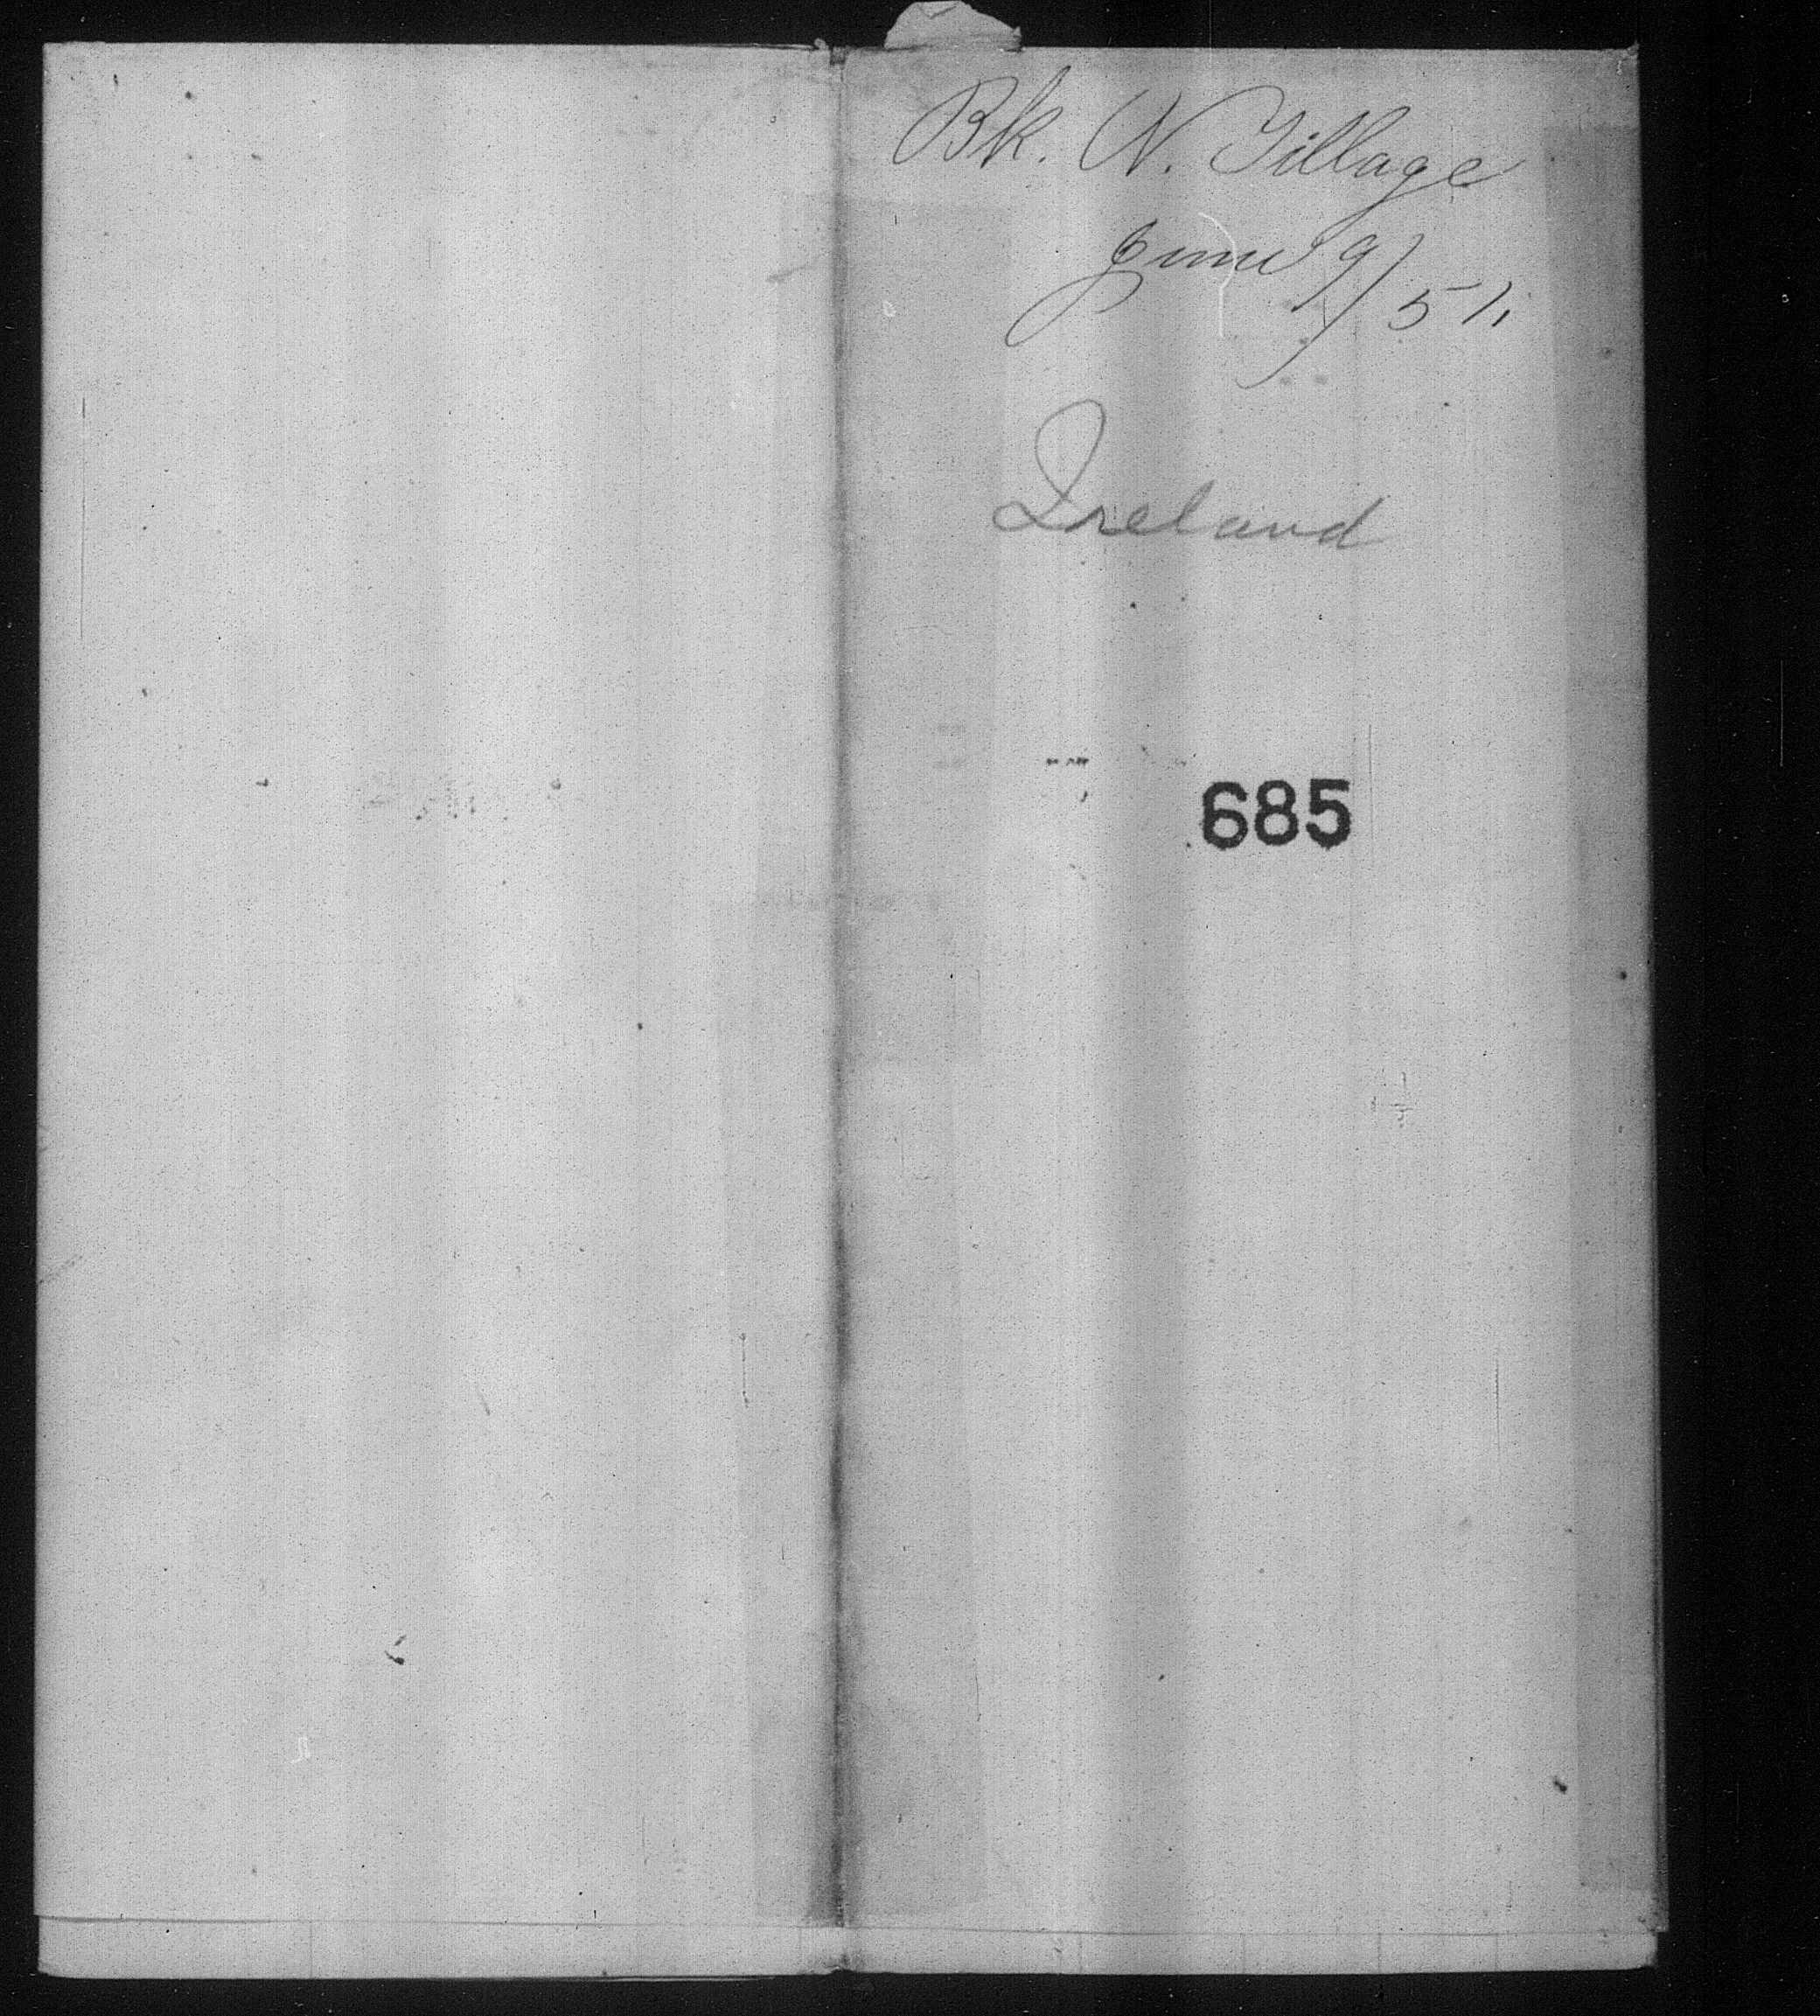 Bk. N. Tillage
June 9/51.
Ireland
685